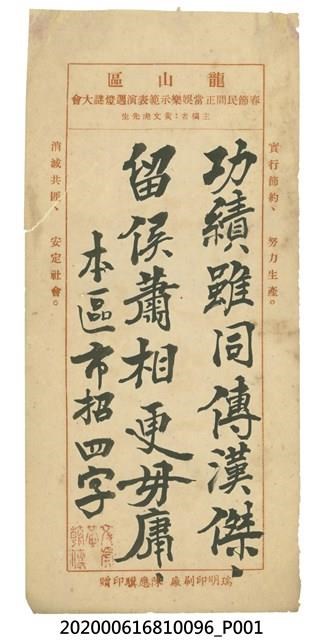 龍山區
春節民間正當娛樂示範表演週燈謎大會
主稿者：黃文虎先生
實行節約、努力生產。
功績雖同傳漢傑、
留侯蕭相更毋庸、
本區市招四字
消滅共匪、安定社會。
瑞明印刷廠 陳應驥印贈
202000616810096_P001